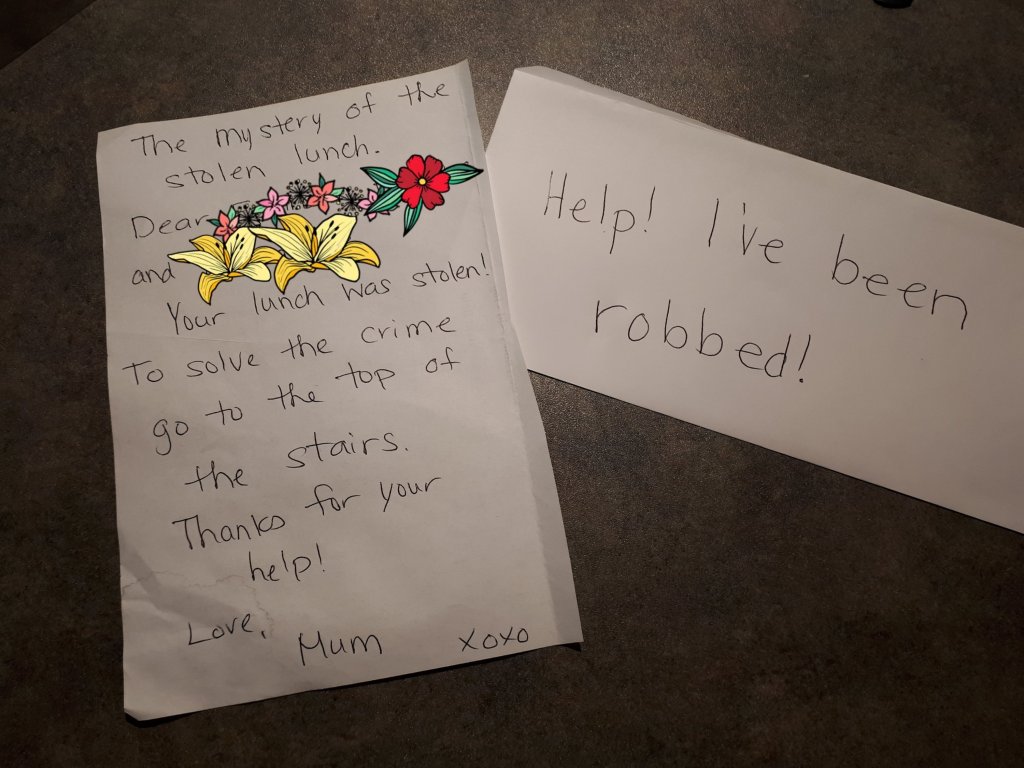 The mystery of the
stolen lunch.
Dear
and
Your lunch was stolen!
To solve the crime
go to the top of
the stairs.
Thanks for your
help!
Love,
Mum xoxo
Help! I've been
robbed!